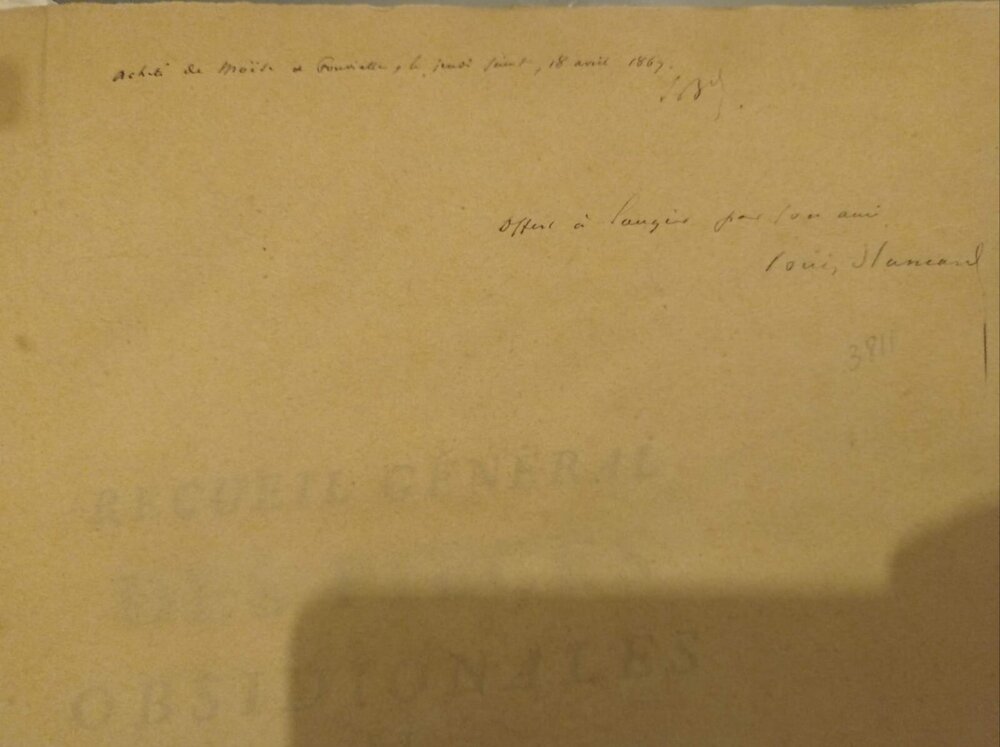 acheté de Moïse à , le jeudi saint, 18 avril 1867.
offert à Laugier par son ami
Louis Blancard
3811
RECUEIL GÉNÉRAL
DES
OBSIDIONALES